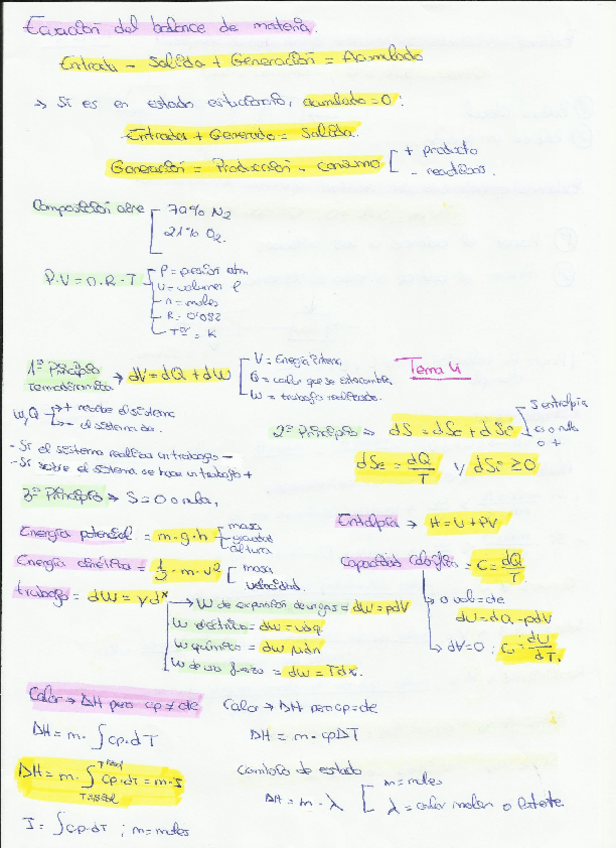 Ecuación del balance de materia.
Entrada - Salida + Generación = Acumulado
→ Si es en estado estacionario, acumulado = 0:
Entrada + Generado = Salida.
Generación = Producción - consumo
+ producto
- reactivos.
Composición aire
79% N2
21% O2.
P·V = n·R·T
P = presión atm
V = volumen l
n = moles
R = 0'082
Tª = K
1er Principio
Termodinámica → dU = dQ + dW
U = Energía interna
Q = calor que se intercambia
W = trabajo realizado.
Tema 4
W,Q → + recibe el sistema
→ - el sistema da.
2º Principio → dS = dSe + dSi
S entropía
0 o nula
o +
- Si el sistema realiza un trabajo -
- Si sobre el sistema se hace un trabajo +
dSe = dQ/T y dSi ≥ 0
3er Principio → S = 0 o nula,
Energía potencial = m·g·h
masa
gravedad
altura
Entalpía → H = U + PV
Energía cinética = 1/2 · m · v2
masa
velocidad.
Capacidad calorífica = C = dQ/T
trabajo = dW = y dx
→ W de expansión de un gas = dW = pdV
W eléctrico = dW = vdq
W químico = dW = μdn
W de una fuerza = dW = Fdx.
→ o vol = cte
dU = dQ - pdV
→ dV = 0; Cv = dU/dT.
Calor → ΔH pero cp ≠ cte
Calor → ΔH pero cp = cte
ΔH = m · ∫cp·dT
ΔH = m · cpΔT
ΔH = m · ∫ cp·dT = m·I
Cambio de estado
ΔH = m · λ
m = moles
λ = calor molar o latente.
I = ∫cp·dT ; m = moles